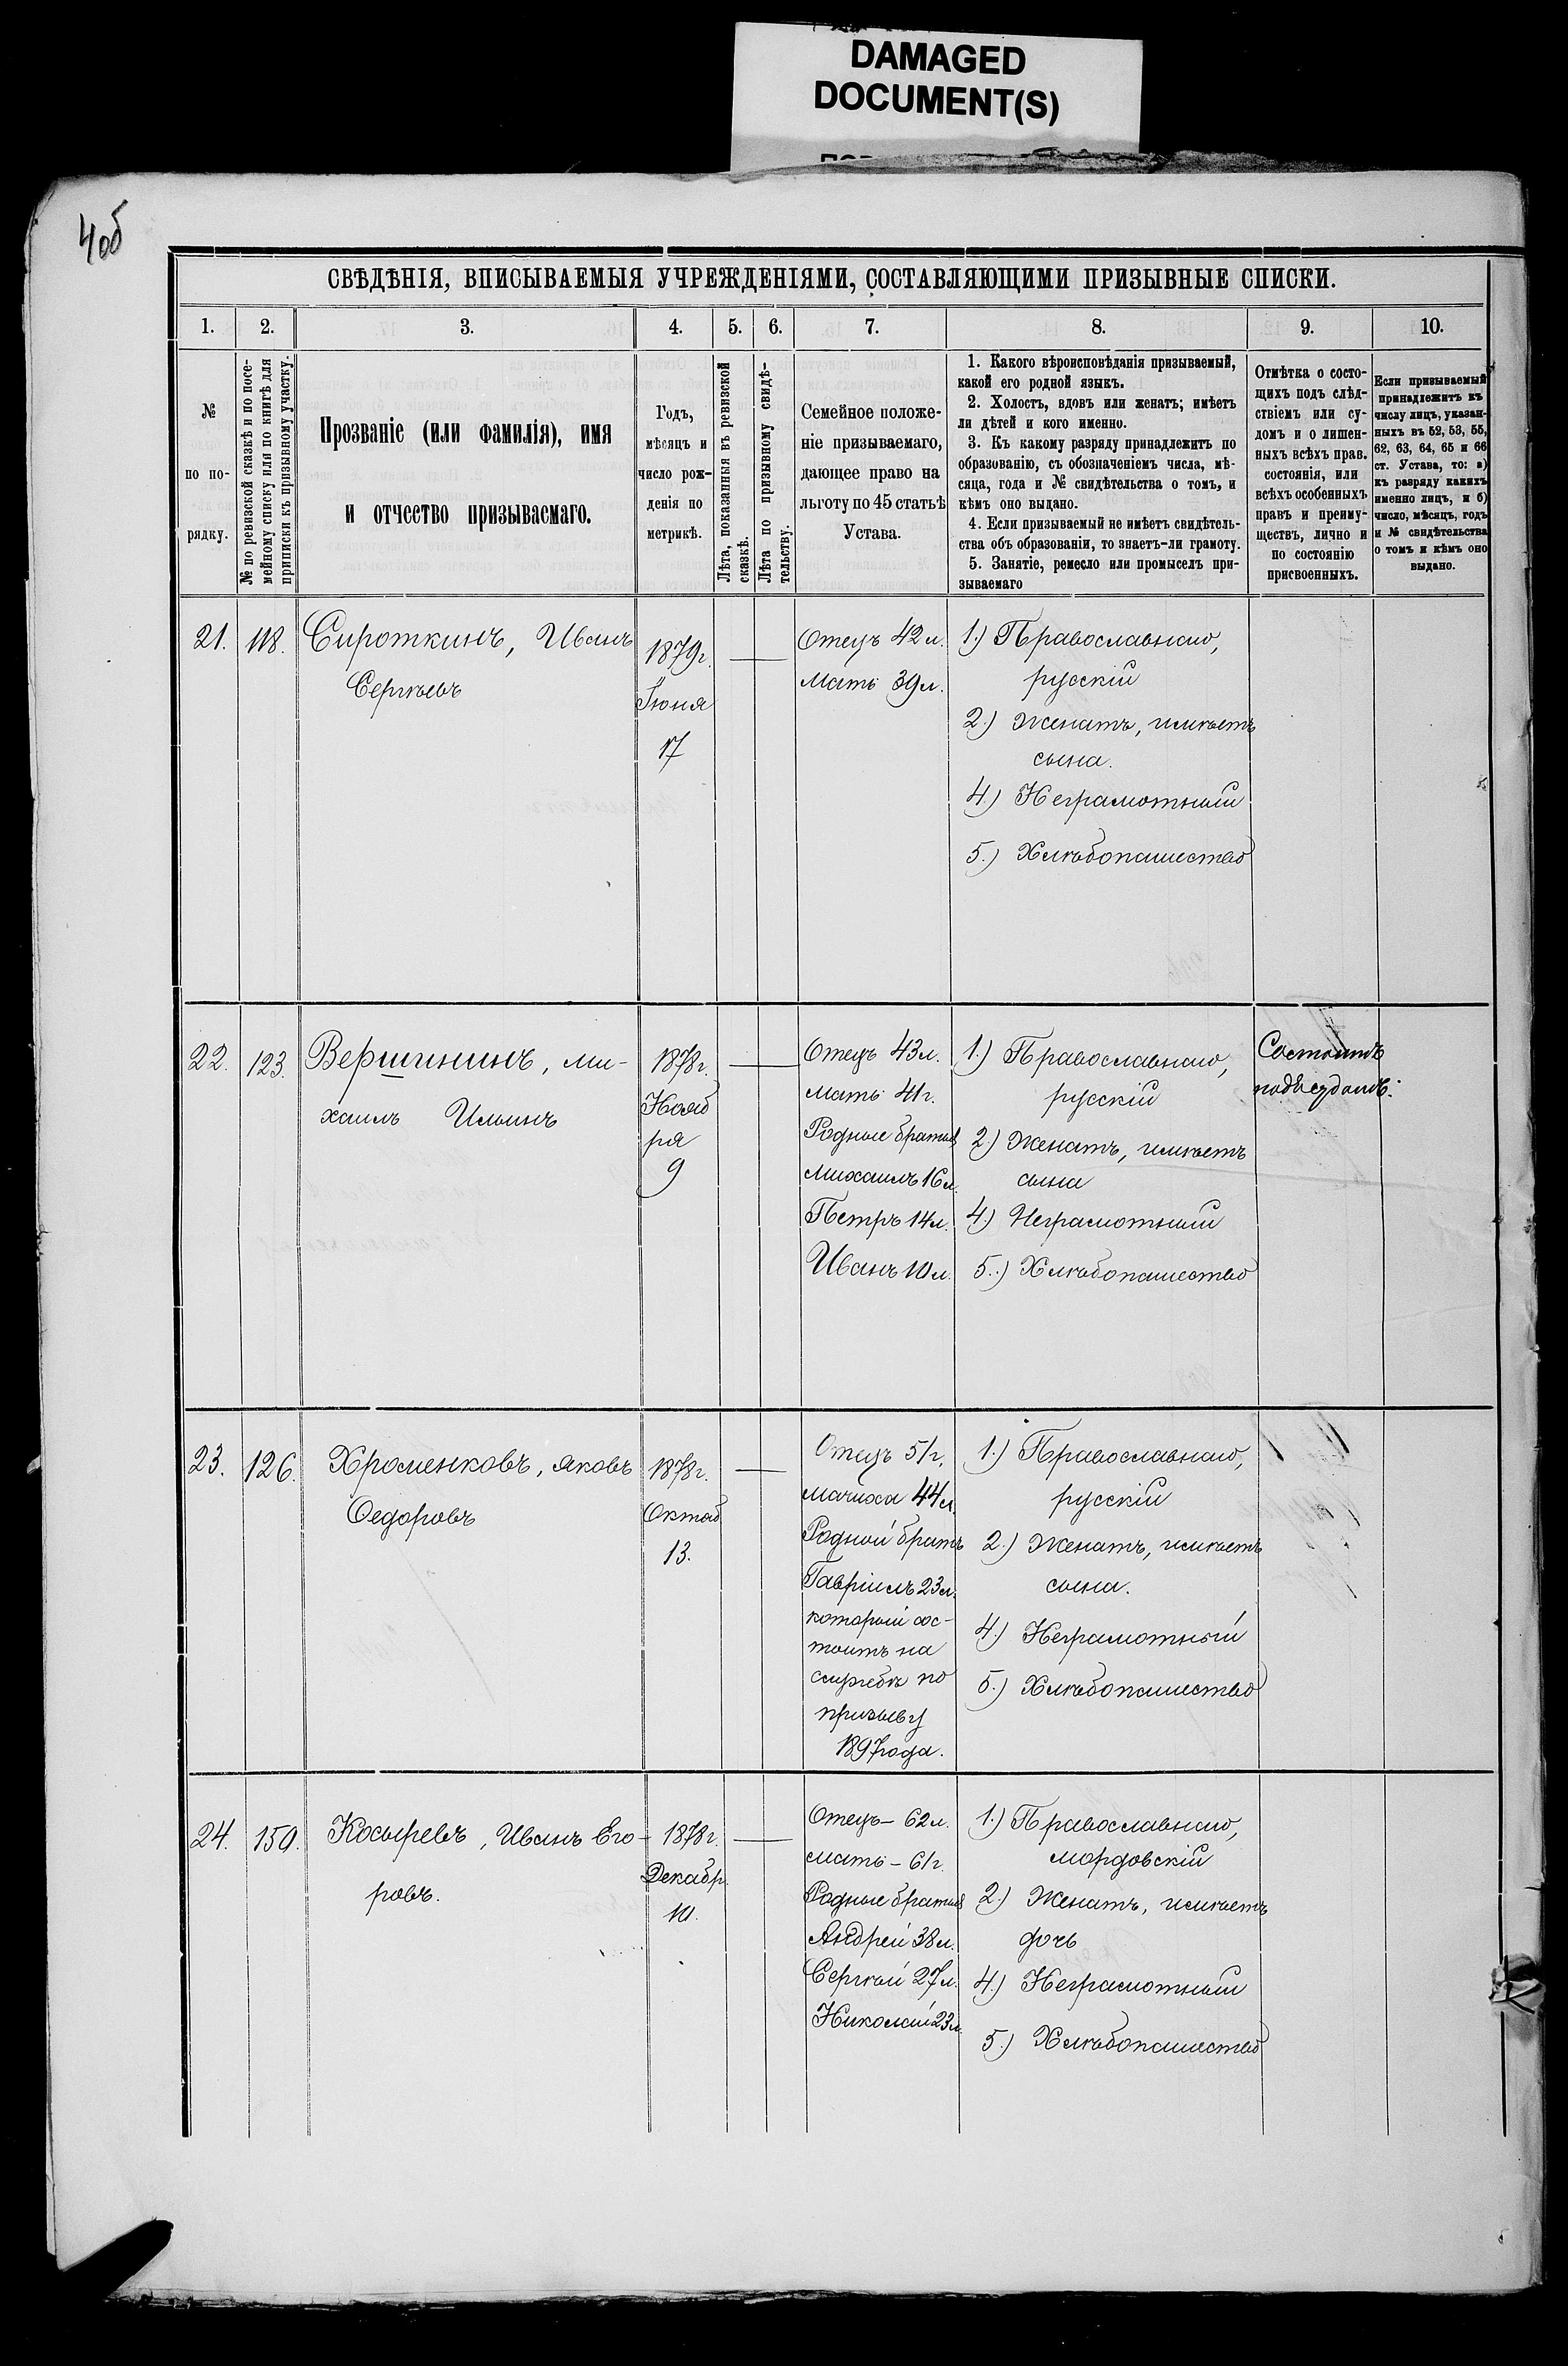 DAMAGED
DOCUMENT(S)
4об
СВѢДѢНІЯ, ВПИСЫВАЕМЫЯ УЧРЕЖДЕНІЯМИ, СОСТАВЛЯЮЩИМИ ПРИЗЫВНЫЕ СПИСКИ.
1. 2. 3. 4. 5. 6. 7. 8. 9. 10.
№
по по-
рядку.
№ по ревизской сказкѣ и по посе-
мейному списку или по книгѣ для
приписки къ призывному участку.
Прозваніе (или фамилія), имя
и отчество призываемаго.
Годъ,
мѣсяцъ и
число рож-
денія по
метрикѣ.
Лѣта, показанныя въ ревизской
сказкѣ.
Лѣта по призывному свидѣ-
тельству.
Семейное положе-
ніе призываемаго,
дающее право на
льготу по 45 статьѣ
Устава.
1. Какого вѣроисповѣданія призываемый,
какой его родной языкъ.
2. Холостъ, вдовъ или женатъ; имѣетъ
ли дѣтей и кого именно.
3. Къ какому разряду принадлежитъ по
образованію, съ обозначеніемъ числа, мѣ-
сяца, года и № свидѣтельства о томъ, и
кѣмъ оно выдано.
4. Если призываемый не имѣетъ свидѣтель-
ства объ образованіи, то знаетъ-ли грамоту.
5. Занятіе, ремесло или промыселъ при-
зываемаго
Отмѣтка о состо-
щихъ подъ слѣд-
ствіемъ или су-
домъ и о лишен-
ныхъ всѣхъ прав.
состоянія, или
всѣхъ особенныхъ
правъ и преиму-
ществъ, лично и
по состоянію
присвоенныхъ.
Если призываемый
принадлежитъ къ
числу лицъ, указан-
ныхъ въ 52, 53, 55,
62, 63, 64, 65 и 66
ст. Устава, то: а)
къ разряду какихъ
именно лицъ, и б)
число, мѣсяцъ, годъ
и № свидѣтельства
о томъ и кѣмъ оно
выдано.
21. 118. Сироткинъ, Иванъ
Сергѣевъ
1879г.
Іюня
17
Отецъ 42 л.
Мать 39 л.
1.) Православнаго,
русскій
2.) Женатъ, имѣетъ
сына.
4.) Неграмотный
5.) Хлѣбопашество
22. 123. Вершининъ, Ми-
хаилъ Ильинъ
1878г.
Нояб
ря
9
Отецъ 43 л.
Мать 41 г.
Родные братья
Михаилъ 16 л.
Петръ 14 л.
Иванъ 10 л.
1.) Православнаго,
русскій
2) Женатъ, имѣетъ
сына
4.) Неграмотный
5.) Хлѣбопашество
Состоитъ
подъ судомъ.
23. 126. Хроменковъ, Яковъ
Ѳедоровъ
1878г.
Октяб
13.
Отецъ 51 г.
Мачиха 44 л.
Родной братъ
Гавріилъ 23 л.
который сос-
тоитъ на
службѣ по
призыву
1897 года.
1.) Православнаго,
русскій
2.) Женатъ, имѣетъ
сына.
4.) Неграмотный
5.) Хлѣбопашество
24. 150. Косыревъ, Иванъ Его-
ровъ.
1878г.
Декабр.
10.
Отецъ – 62 л.
Мать – 61 г.
Родные братья
Андрей 38 л.
Сергѣй 27 л.
Николай 23 л.
1.) Православнаго,
мордовскій
2.) Женатъ, имѣетъ
дочь
4.) Неграмотный
5.) Хлѣбопашество